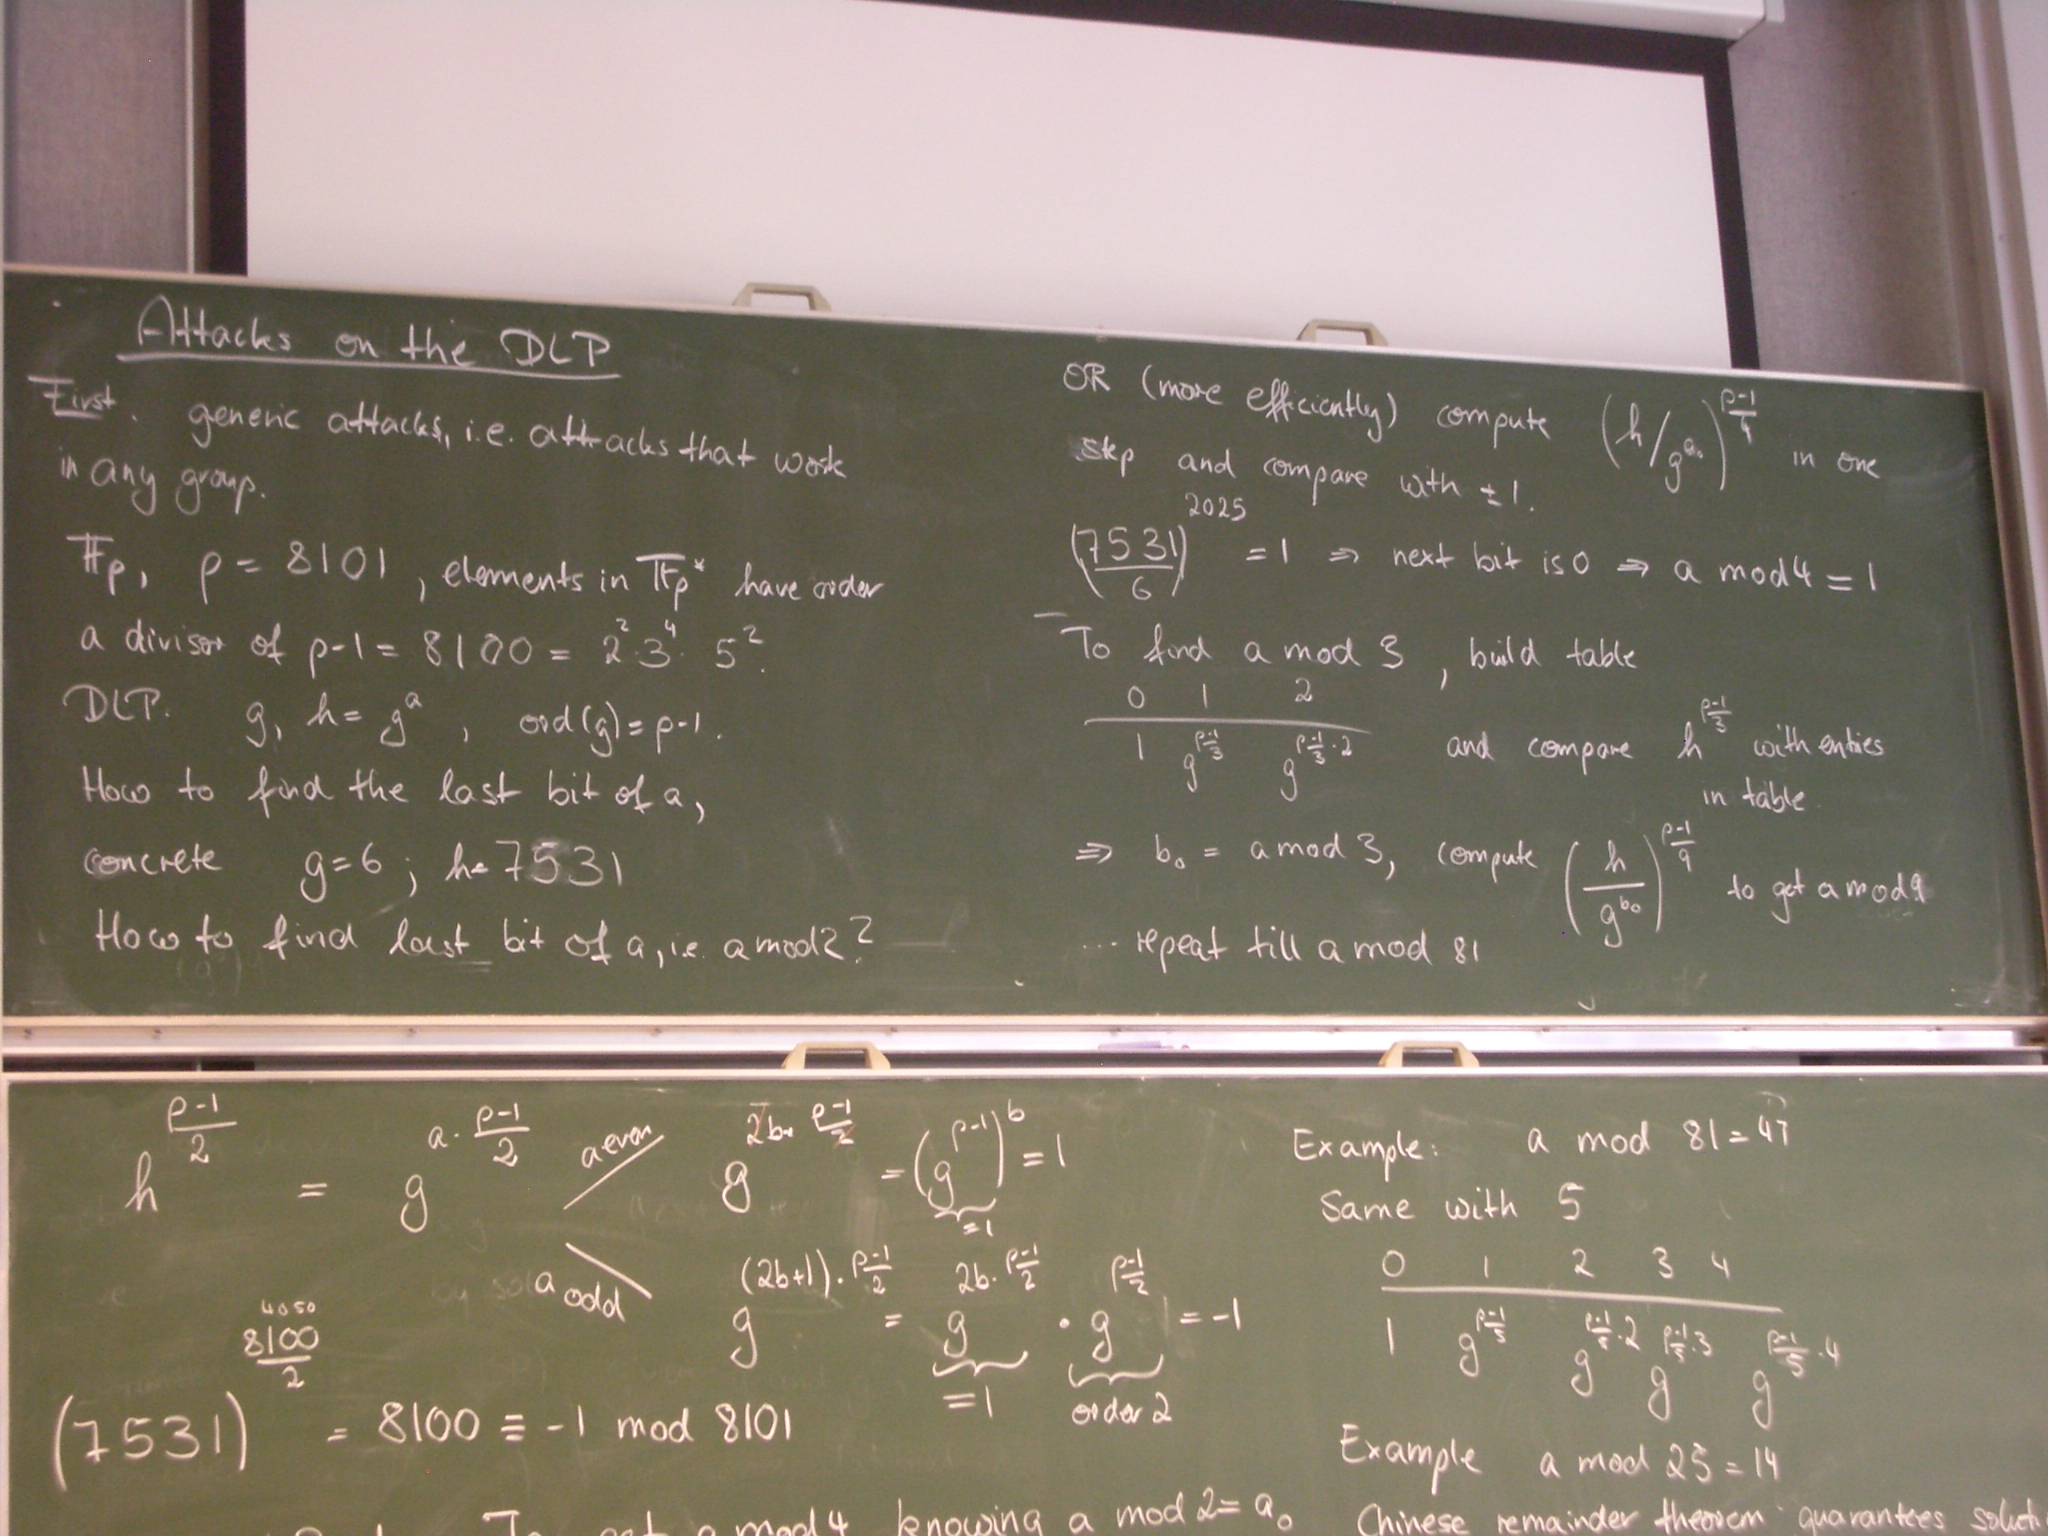 Attacks on the DLP
First. generic attacks, i.e. attacks that work
in any group.
𝔽_p, p = 8101, elements in 𝔽_p* have order
a divisor of p-1 = 8100 = 2^2·3^4·5^2.
DLP. g, h = g^a, ord(g) = p-1.
How to find the last bit of a,
concrete g=6; h=7531
How to find last bit of a, i.e. a mod 2?
OR (more efficiently) compute (h/g^{a_0})^{(p-1)/4} in one
step and compare with ±1.
(7531/6)^{2025} = 1 ⇒ next bit is 0 ⇒ a mod 4 = 1
To find a mod 3, build table
0 1 2
1 g^{(p-1)/3} g^{(p-1)/3·2} and compare h^{(p-1)/3} with entries
in table.
⇒ b_0 = a mod 3, compute (h/g^{b_0})^{(p-1)/9} to get a mod 9
... repeat till a mod 81
h^{(p-1)/2} = g^{a·(p-1)/2}
a even g^{2b·(p-1)/2} = (g^{p-1})^b = 1
=1
a odd g^{(2b+1)·(p-1)/2} = g^{2b·(p-1)/2} · g^{(p-1)/2} = -1
=1 order 2
4050
(7531)^{8100/2} = 8100 ≡ -1 mod 8101
a mod 4 knowing a mod 2 = a_0
Example: a mod 81 = 47
Same with 5
0 1 2 3 4
1 g^{(p-1)/5} g^{(p-1)/5·2} g^{(p-1)/5·3} g^{(p-1)/5·4}
Example a mod 25 = 14
Chinese remainder theorem guarantees